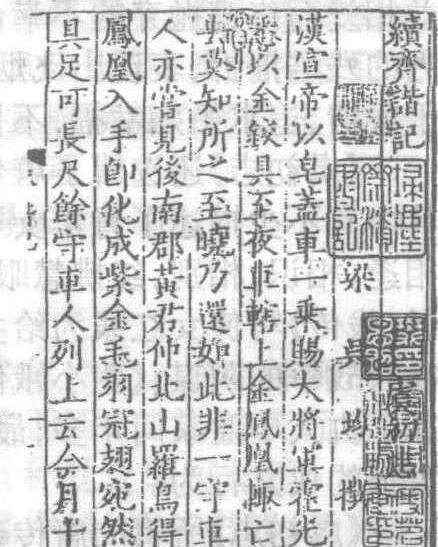 續齊諧記
梁 吳均撰
漢宣帝以皂蓋車一乘賜大將軍霍光
悉以金鉸具至夜車轄上金鳳凰輒亡
去莫知所之至曉乃還如此非一守車
人亦嘗見後南郡黃君仲北山羅鳥得
鳳凰入手即化成紫金毛羽冠翅宛然
具足可長尺餘守車人列上云今月十